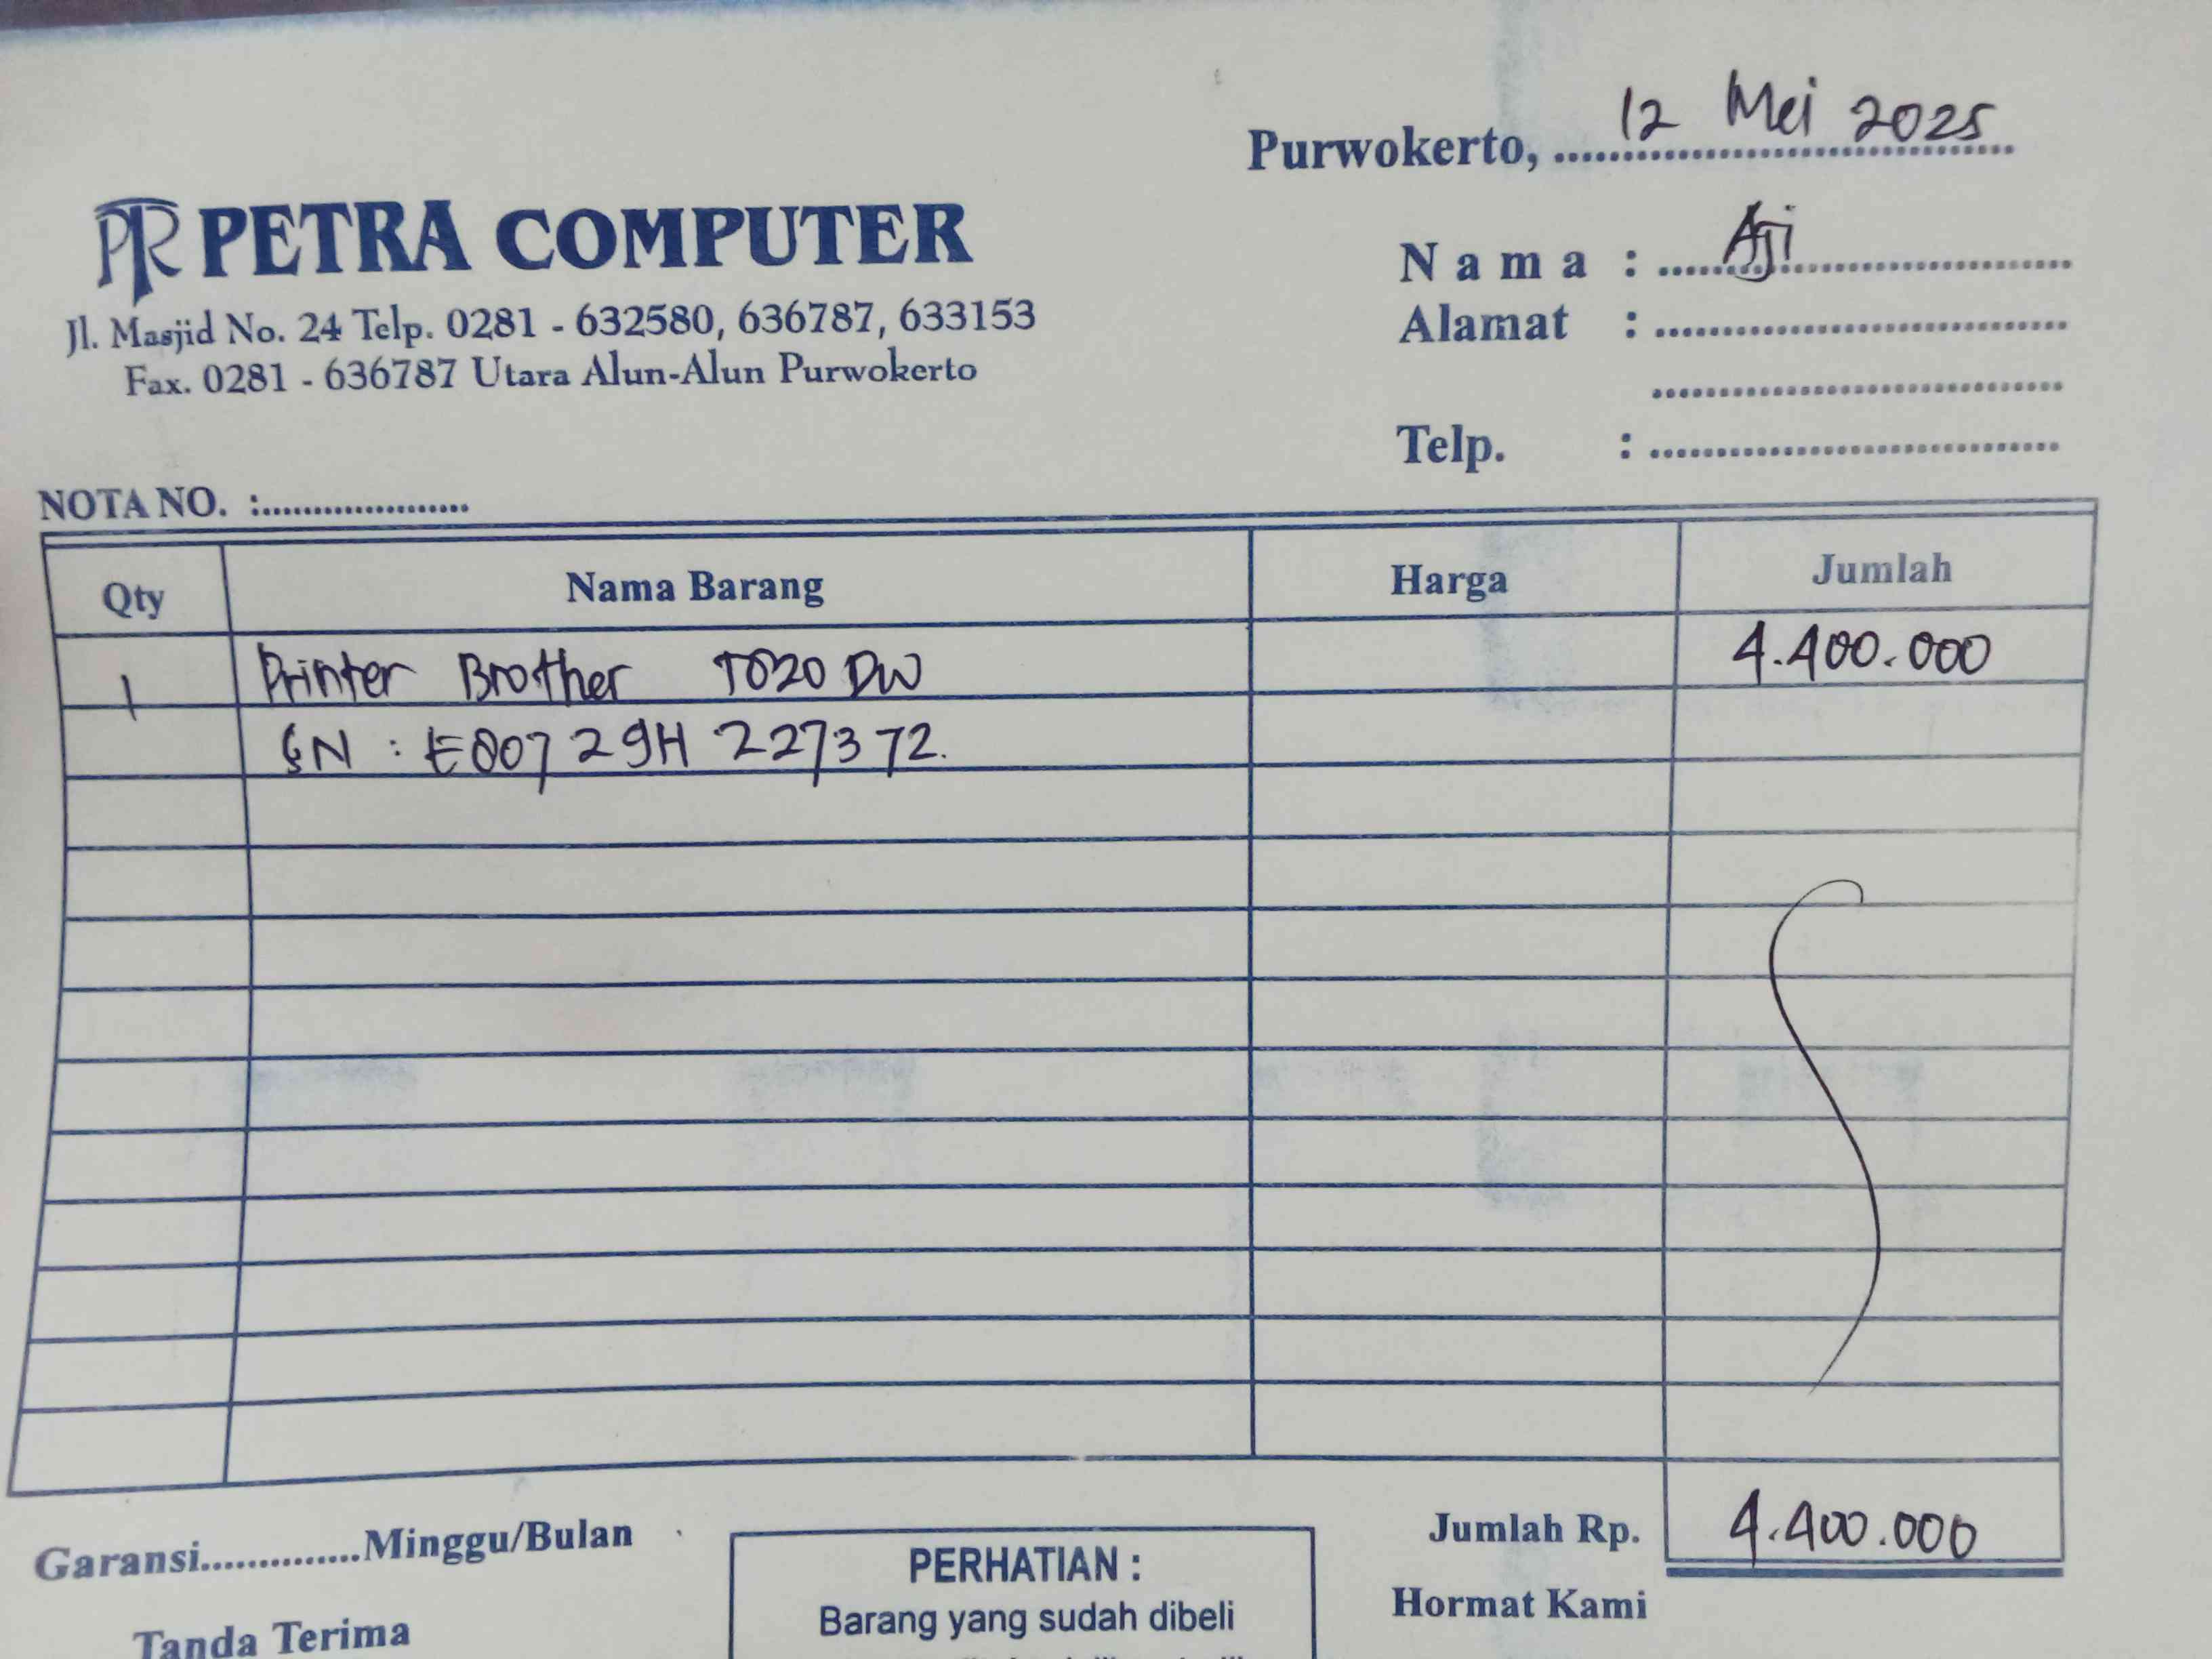 Purwokerto, 12 Mei 2025
PR PETRA COMPUTER
Jl. Masjid No. 24 Telp. 0281 - 632580, 636787, 633153
Fax. 0281 - 636787 Utara Alun-Alun Purwokerto
Nama : Aji
Alamat :
Telp. :
NOTA NO. :
Qty Nama Barang Harga Jumlah
1 Printer Brother T820 DW 4.400.000
SN : E80729H 227372.
Jumlah Rp. 4.400.000
Garansi..............Minggu/Bulan
PERHATIAN :
Barang yang sudah dibeli
Hormat Kami
Tanda Terima